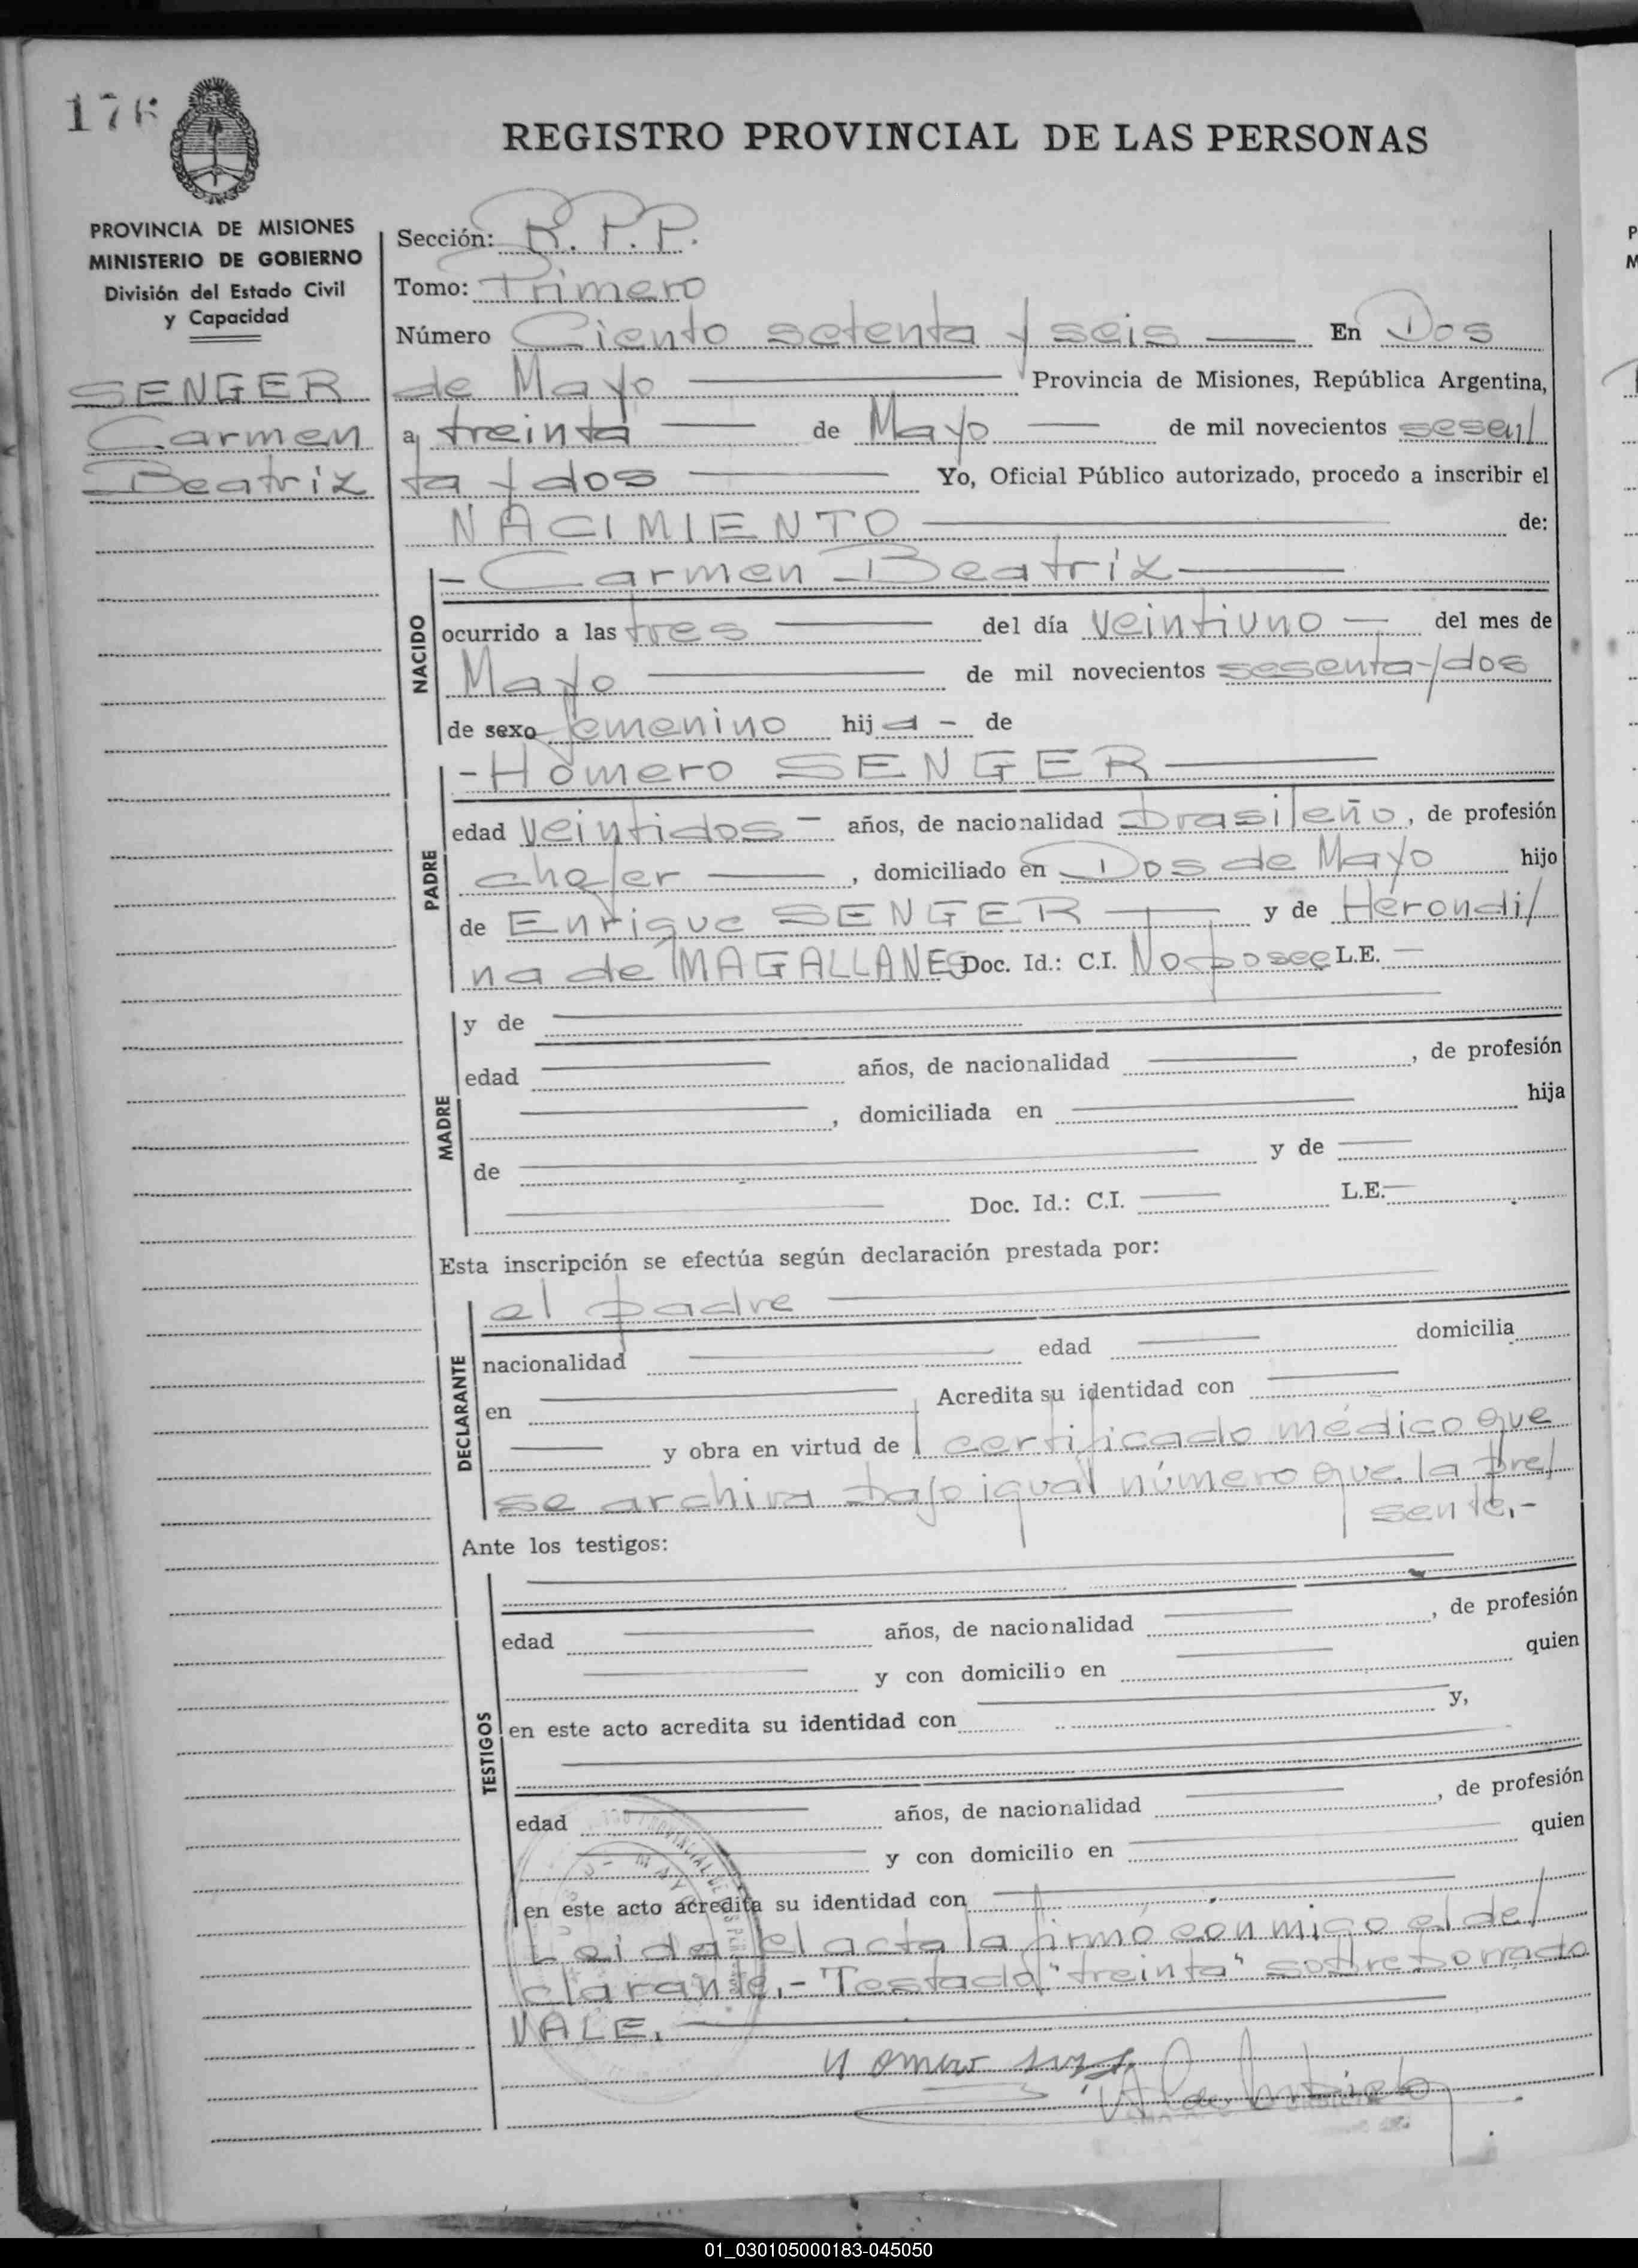 176
REGISTRO PROVINCIAL DE LAS PERSONAS
PROVINCIA DE MISIONES
MINISTERIO DE GOBIERNO
División del Estado Civil
y Capacidad
SENGER
Carmen
Beatriz
Sección: R.P.P.
Tomo: Primero
Número Ciento setenta y seis En Dos
de Mayo Provincia de Misiones, República Argentina,
a treinta de Mayo de mil novecientos sesen/
ta y dos Yo, Oficial Público autorizado, procedo a inscribir el
NACIMIENTO de:
NACIDO
- Carmen Beatriz
ocurrido a las tres del día veintiuno del mes de
Mayo de mil novecientos sesenta y dos
de sexo femenino hija - de
PADRE
- Homero SENGER
edad veintidos - años, de nacionalidad brasileño, de profesión
chofer, domiciliado en Dos de Mayo hijo
de Enrique SENGER y de Herondi/
na de MAGALLANES Doc. Id.: C.I. No posee L.E. -
MADRE
y de
edad años, de nacionalidad , de profesión
, domiciliada en hija
de y de
Doc. Id.: C.I. L.E.
Esta inscripción se efectúa según declaración prestada por:
DECLARANTE
el padre
nacionalidad edad domicilia
en Acredita su identidad con
y obra en virtud de certificado médico que
se archiva bajo igual número que la pre/
sente.-
Ante los testigos:
TESTIGOS
edad años, de nacionalidad , de profesión
y con domicilio en quien
en este acto acredita su identidad con y,
edad años, de nacionalidad , de profesión
y con domicilio en quien
en este acto acredita su identidad con
Leida el acta la firmó conmigo el de/
clarante.- Testado "treinta" sobreborrado
VALE.
01_030105000183-045050